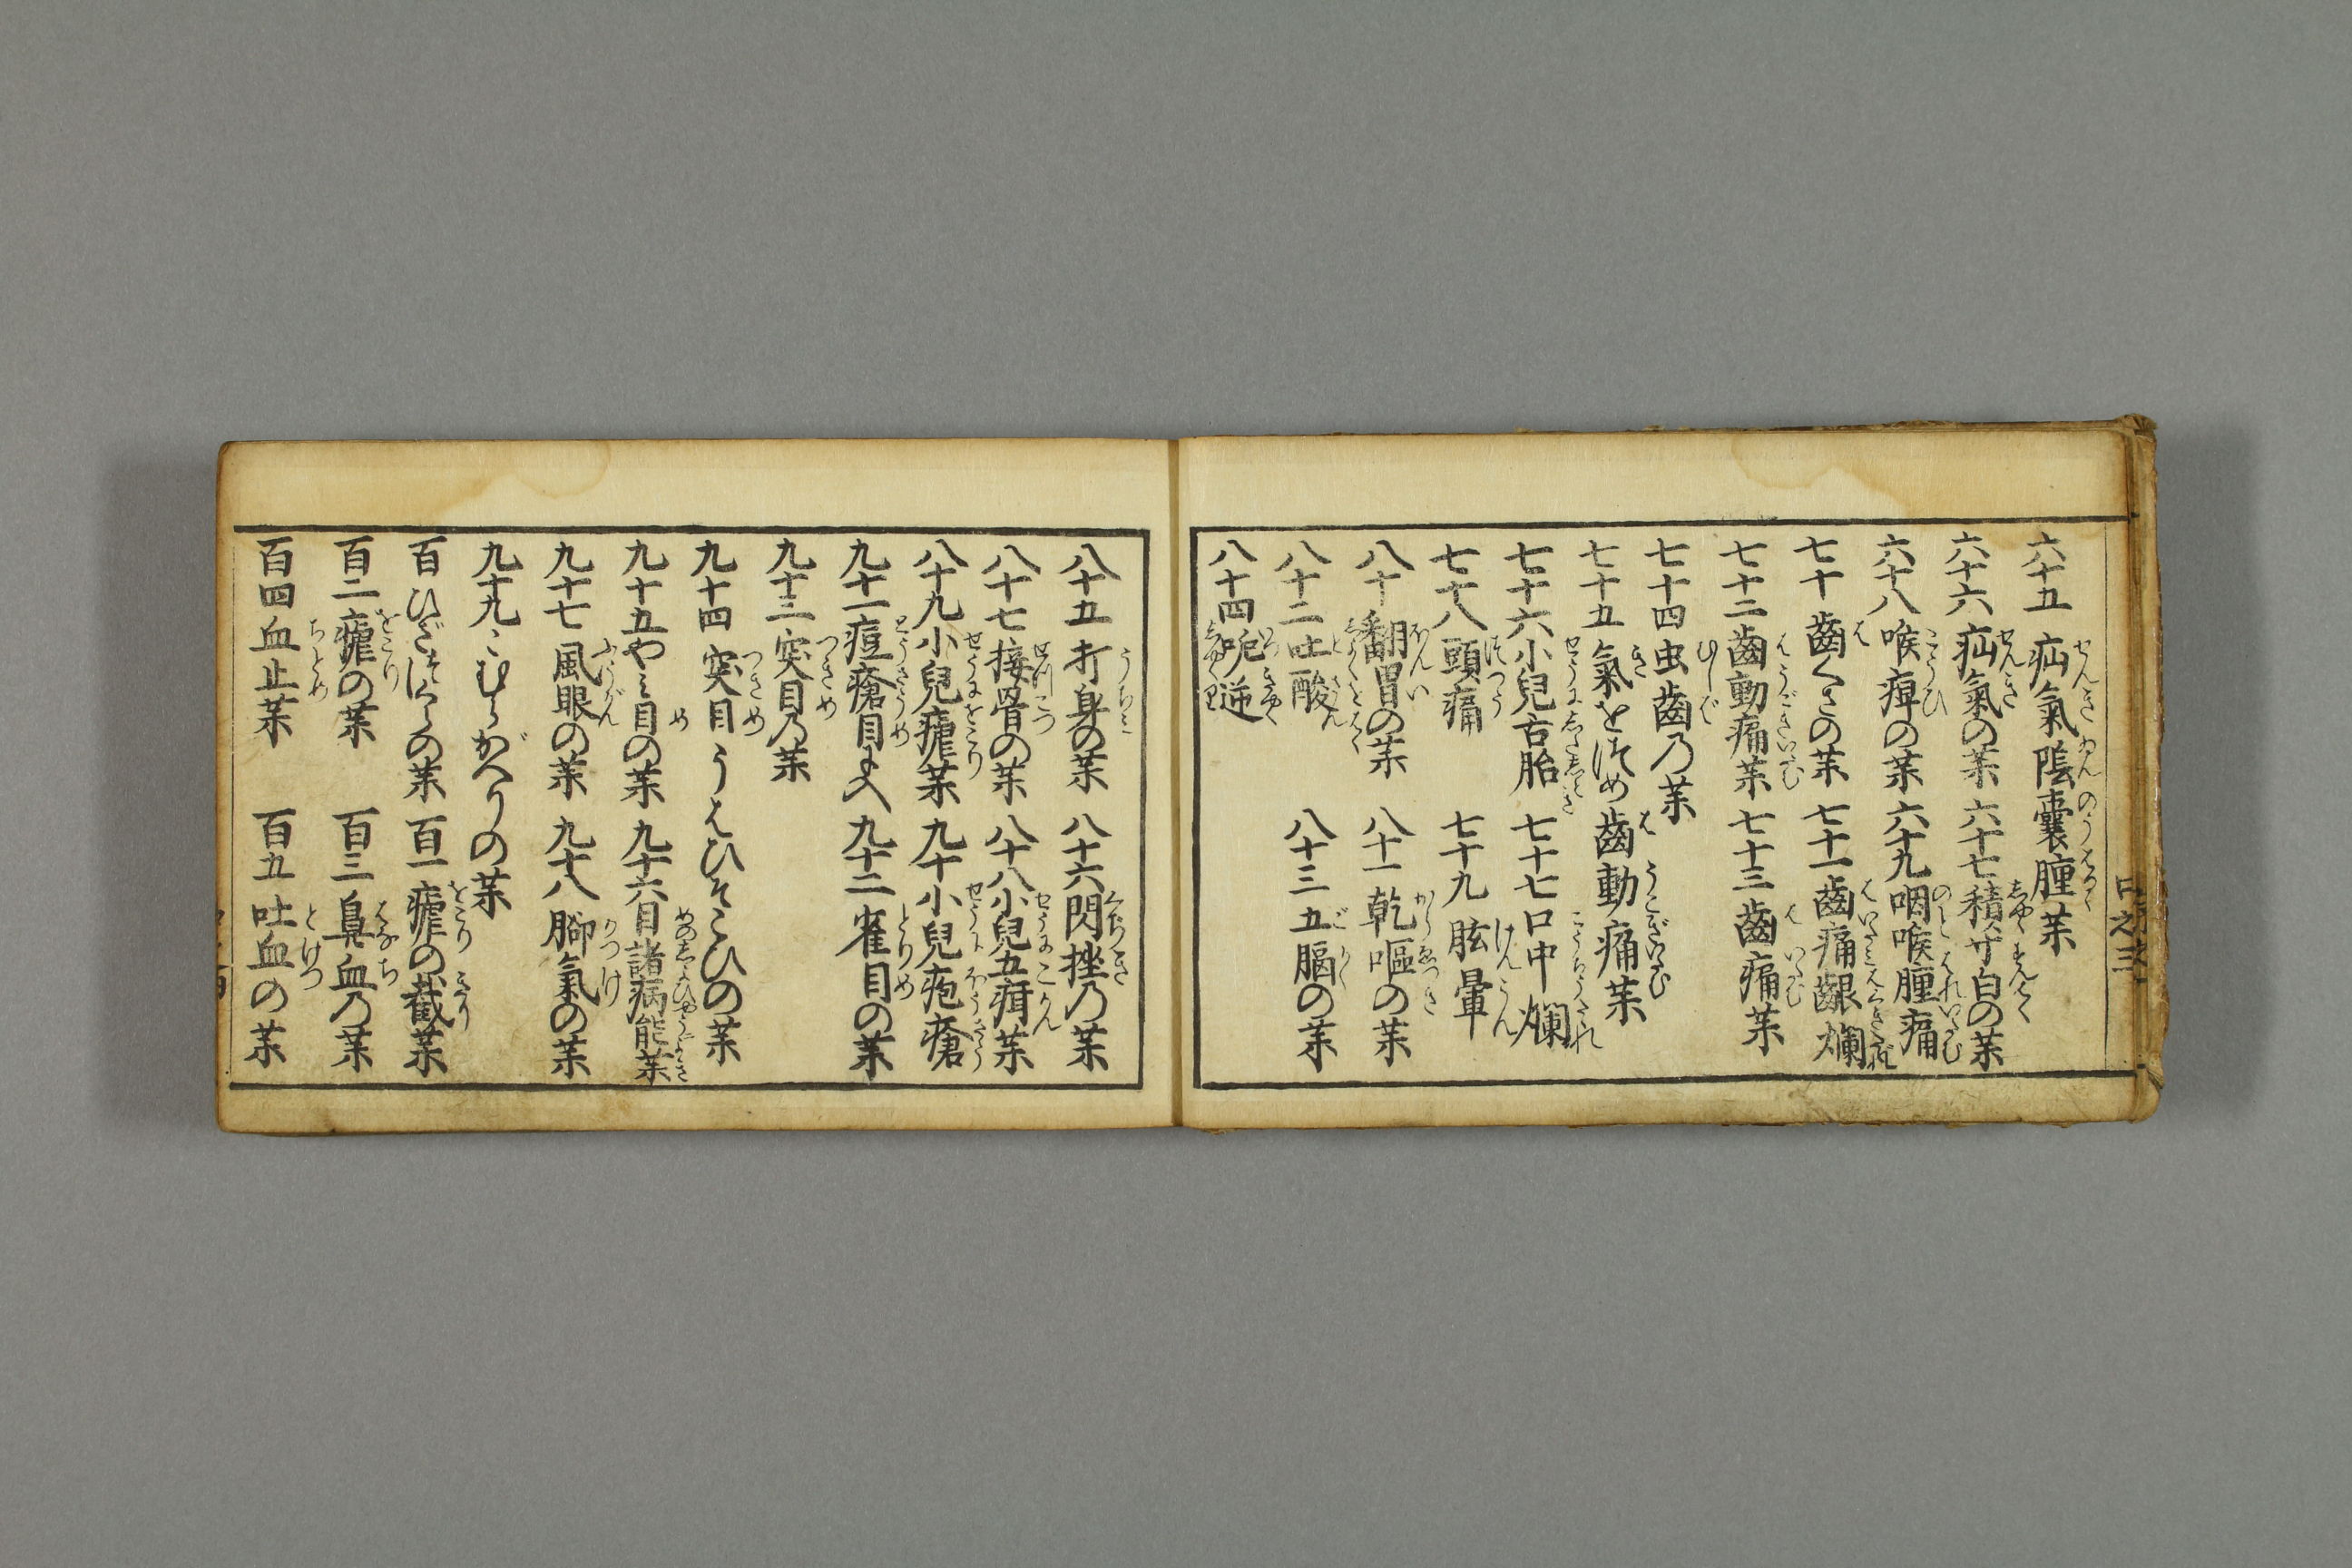 六十五 疝氣陰囊腫薬
六十六 疝氣の薬 六十七 積寸白の薬
六十八 喉痺の薬 六十九 咽喉腫痛
七十 齒くさの薬 七十一 齒痛齦爛
七十二 齒動痛薬 七十三 齒痛薬
七十四 虫齒乃薬
七十五 氣をつめ齒動痛薬
七十六 小兒舌胎 七十七 口中爛
七十八 頭痛 七十九 眩暈
八十 翻胃の薬 八十一 乾嘔の薬
八十二 吐酸 八十三 五膈の薬
八十四 呃逆
八十五 打身の薬 八十六 閃挫乃薬
八十七 接骨の薬 八十八 小兒五疳薬
八十九 小兒瘧薬 九十 小兒疱瘡
九十一 痘瘡目に入 九十二 雀目の薬
九十三 突目乃薬
九十四 突目うはひそこひの薬
九十五 やみ目の薬 九十六 目諸病能薬
九十七 風眼の薬 九十八 脚氣の薬
九十九 こむらがへりの薬
百 の薬 百一 瘧の截薬
百二 瘧の薬 百三 鼻血乃薬
百四 血止薬 百五 吐血の薬